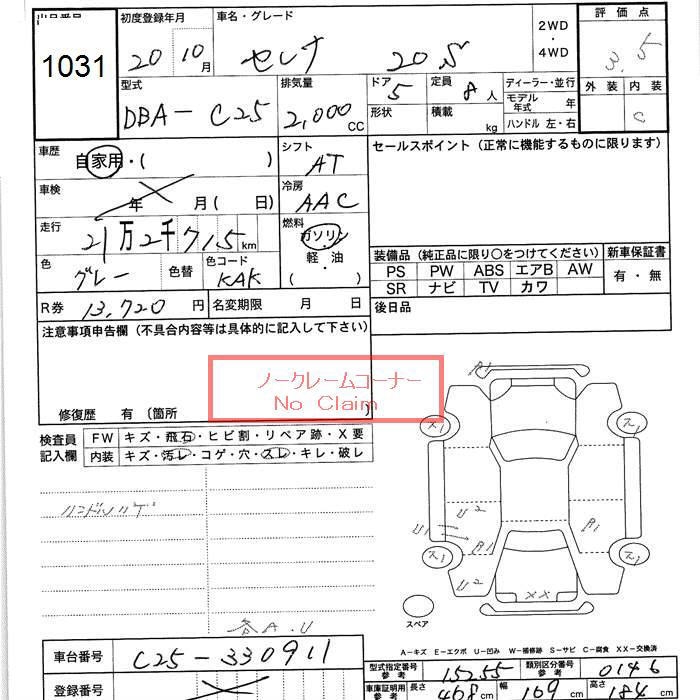 出品番号
1031
初度登録年月
20 10月
車名・グレード
セレナ 20S
2WD
・
4WD
評価点
3.5
外装 内装
C
型式
DBA-C25
排気量
2,000 CC
ドア
5
形状
定員
8人
積載
kg
ディーラー・並行
モデル年式 年
ハンドル 左・右
車歴
自家用・( )
シフト
AT
セールスポイント(正常に機能するものに限ります)
車検
年 月( 日)
冷房
AAC
走行
21万2千715km
燃料
ガソリン
・
軽油
( )
色
グレー
色替
色コード
KAK
装備品(純正品に限り○をつけてください)
新車保証書
PS PW ABS エアB AW
SR ナビ TV カワ
有・無
R券 13,720円
名変期限 月 日
後日品
注意事項申告欄(不具合内容等は具体的に記入して下さい)
ノークレームコーナー
No Claim
修復歴 有 (箇所 )
検査員記入欄
FW キズ・飛石・ヒビ割・リペア跡・X要
内装 キズ・汚レ・コゲ・穴・スレ・キレ・破レ
ハンドルハゲ
各A.U
A1
ス1
ス1
U2
U1
A1
A1
ス1
ス1
U2
XX
スペア
A-キズ E-エクボ U-凹み W-補修跡 S-サビ C-腐食 XX-交換済
車台番号 C25-330911
登録番号
型式指定番号 参考 15255
類別区分番号 参考 0146
車庫証明用 参考 長さ 468cm 幅 169cm 高さ 184cm